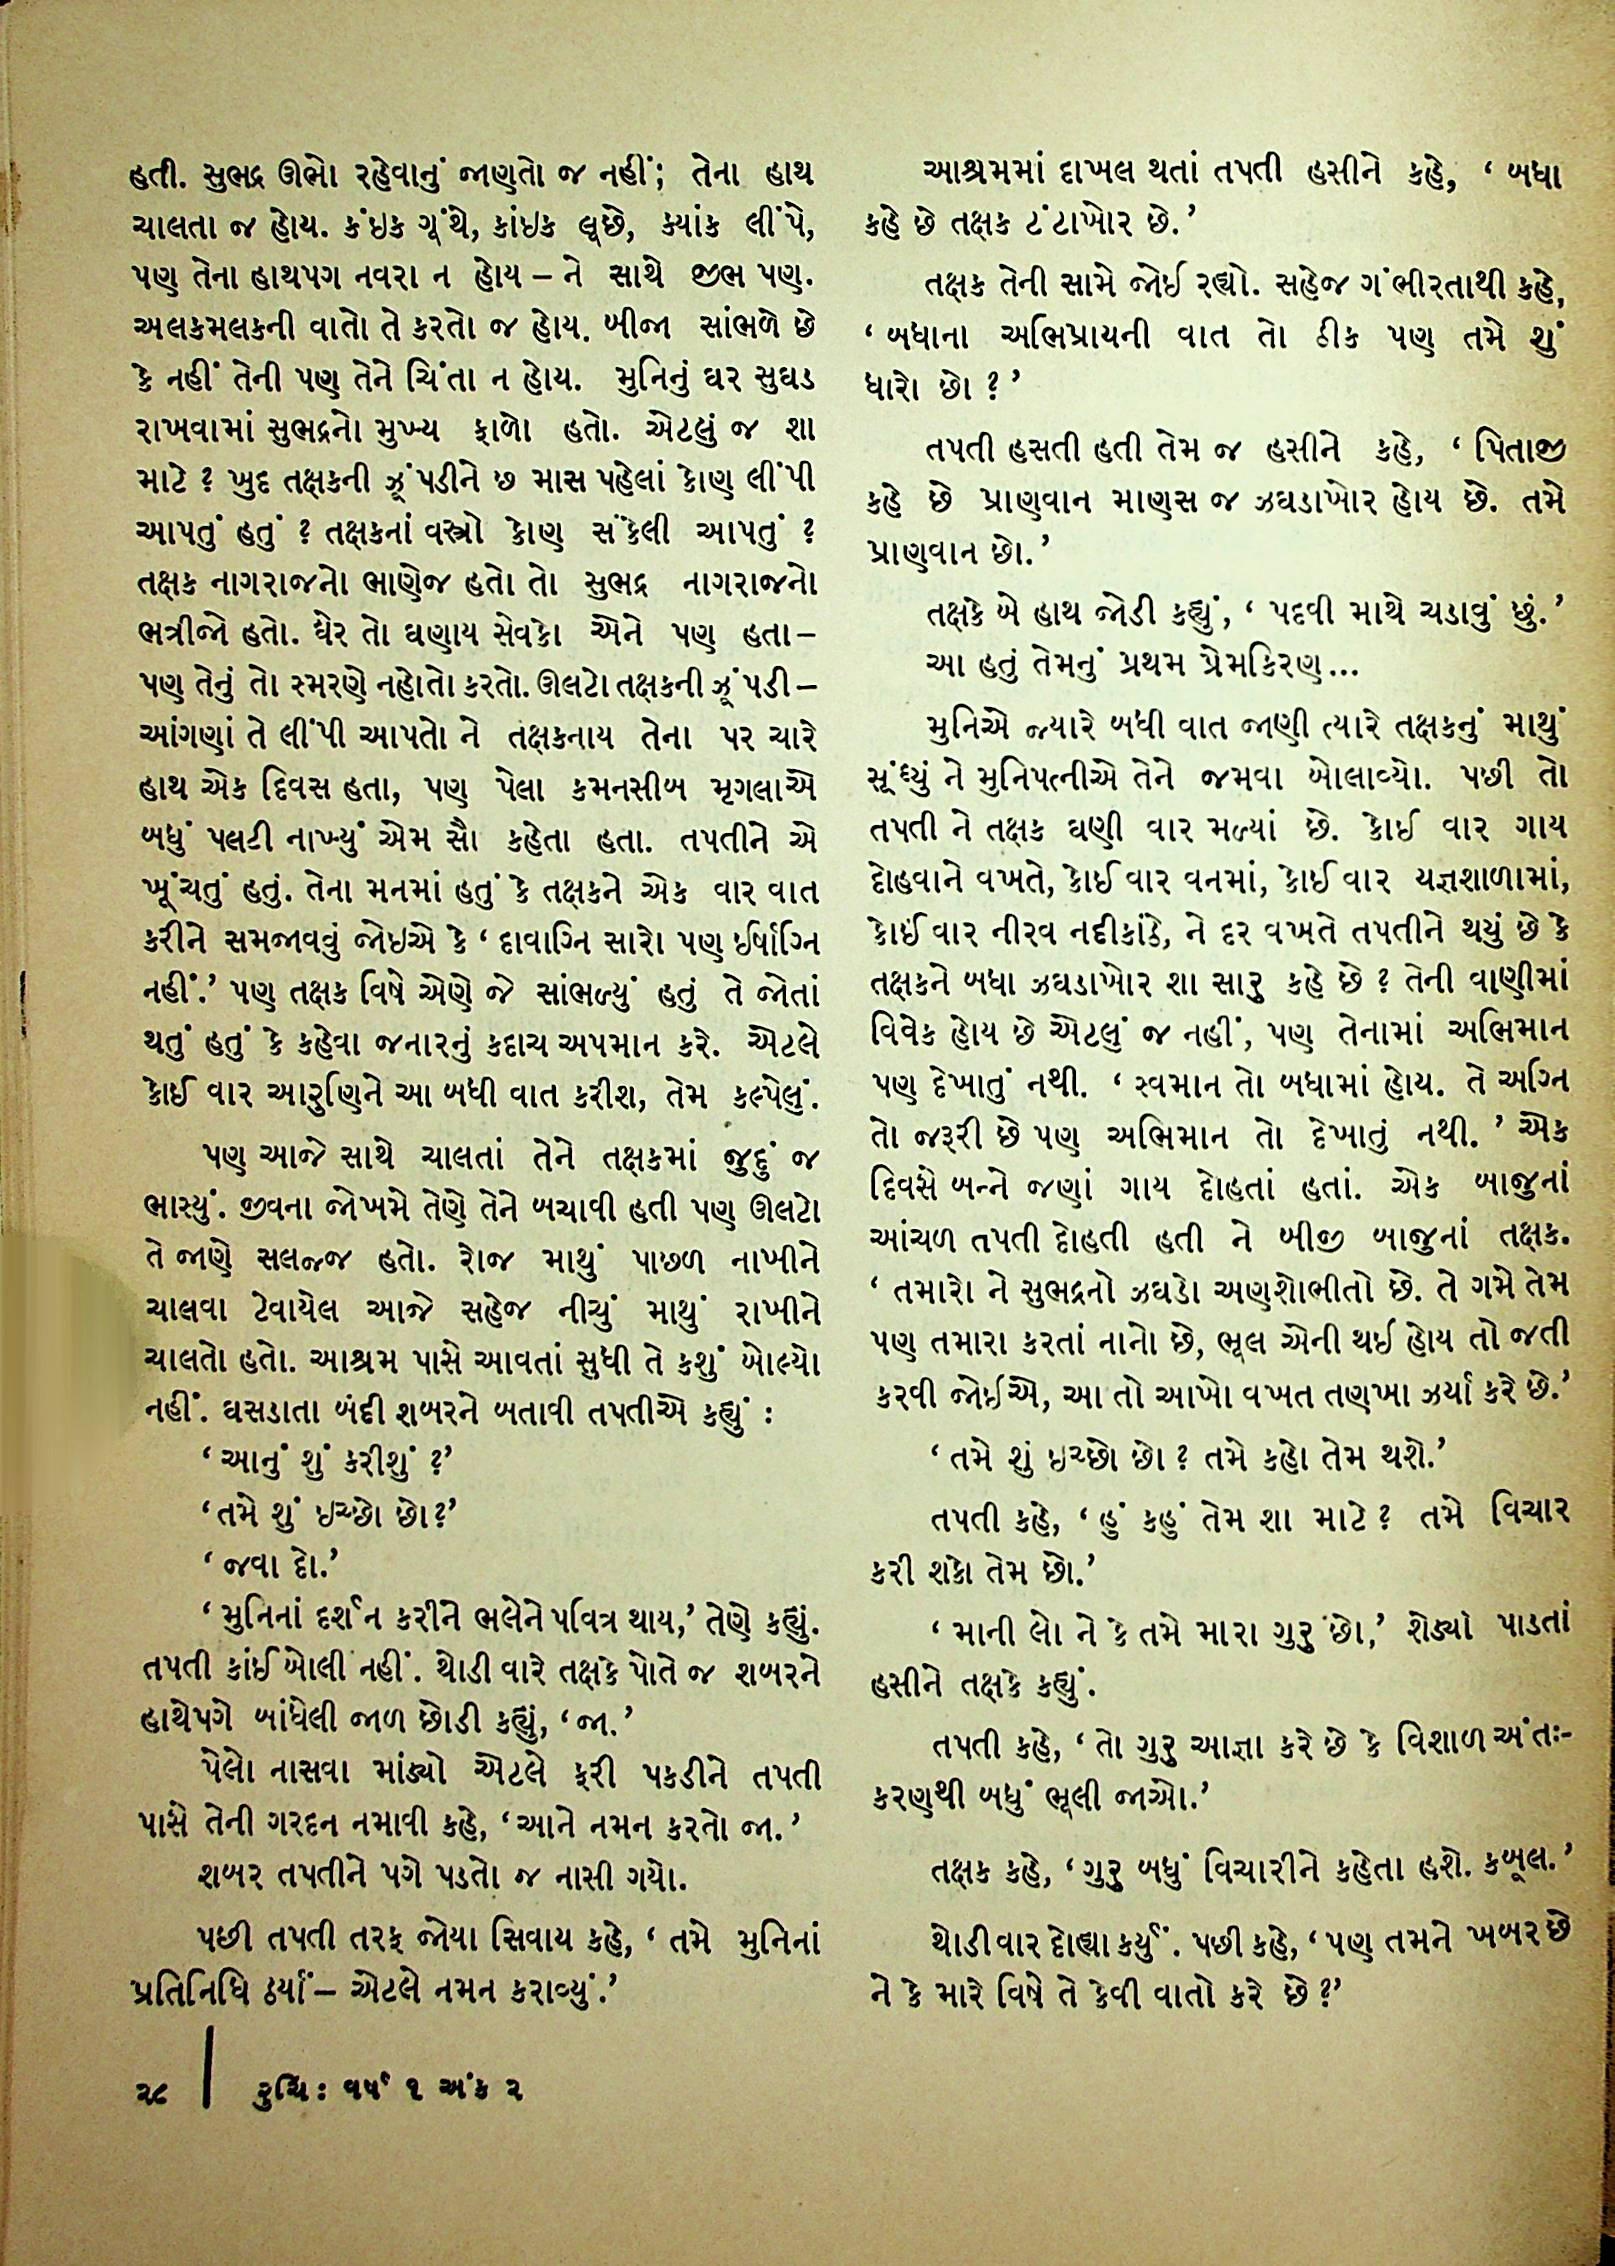 હતી. સુભદ્ર ઊભો રહેવાનું જાણતો જ નહીં; તેના હાથ
ચાલતા જ હોય. કંઇક ગૂંથે, કાંઇક લૂછે, ક્યાંક લીંપે,
પણ તેના હાથપગ નવરા ન હોય – ને સાથે જીભ પણ.
અલકમલકની વાતો તે કરતો જ હોય. બીજા સાંભળે છે
કે નહીં તેની પણ તેને ચિંતા ન હોય. મુનિનું ઘર સુઘડ
રાખવામાં સુભદ્રનો મુખ્ય ફાળો હતો. એટલું જ શા
માટે ? ખુદ તક્ષકની ઝૂંપડીને છ માસ પહેલાં કોણ લીંપી
આપતું હતું ? તક્ષકનાં વસ્ત્રો કોણ સંકેલી આપતું ?
તક્ષક નાગરાજનો ભાણેજ હતો તો સુભદ્ર નાગરાજનો
ભત્રીજો હતો. ઘેર તો ઘણાય સેવકો એને પણ હતા –
પણ તેનું તો સ્મરણે નહોતો કરતો. ઊલટો તક્ષકની ઝૂંપડી –
આંગણાં તે લીંપી આપતો ને તક્ષકનાય તેના પર ચારે
હાથ એક દિવસ હતા, પણ પેલા કમનસીબ મૃગલાએ
બધું પલટી નાખ્યું એમ સૌ કહેતા હતા. તપતીને એ
ખૂંચતું હતું. તેના મનમાં હતું કે તક્ષકને એક વાર વાત
કરીને સમજાવવું જોઇએ કે ‘ દાવાગ્નિ સારો પણ ઈર્ષાગ્નિ
નહીં.’ પણ તક્ષક વિષે એણે જે સાંભળ્યું હતું તે જોતાં
થતું હતું કે કહેવા જનારનું કદાચ અપમાન કરે. એટલે
કોઈ વાર આરુણિને આ બધી વાત કરીશ, તેમ કલ્પેલું.
પણ આજે સાથે ચાલતાં તેને તક્ષકમાં જુદું જ
ભાસ્યું. જીવના જોખમે તેણે તેને બચાવી હતી પણ ઊલટો
તે જાણે સલજ્જ હતો. રોજ માથું પાછળ નાખીને
ચાલવા ટેવાયેલ આજે સહેજ નીચું માથું રાખીને
ચાલતો હતો. આશ્રમ પાસે આવતાં સુધી તે કશું બોલ્યો
નહીં. ઘસડાતા બંદી શબરને બતાવી તપતીએ કહ્યું :
‘ આનું શું કરીશું ?’
‘ તમે શું ઇચ્છો છો ?’
‘ જવા દો.’
‘ મુનિનાં દર્શન કરીને ભલેને પવિત્ર થાય,’ તેણે કહ્યું.
તપતી કાંઈ બોલી નહીં. થોડી વારે તક્ષકે પોતે જ શબરને
હાથેપગે બાંધેલી જાળ છોડી કહ્યું, ‘ જા.’
પેલો નાસવા માંડ્યો એટલે ફરી પકડીને તપતી
પાસે તેની ગરદન નમાવી કહે, ‘ આને નમન કરતો જા. ’
શબર તપતીને પગે પડતો જ નાસી ગયો.
પછી તપતી તરફ જોયા સિવાય કહે, ‘ તમે મુનિનાં
પ્રતિનિધિ ઠર્યાં – એટલે નમન કરાવ્યું.’
આશ્રમમાં દાખલ થતાં તપતી હસીને કહે, ‘ બધા
કહે છે તક્ષક ટંટાખોર છે.’
તક્ષક તેની સામે જોઈ રહ્યો. સહેજ ગંભીરતાથી કહે,
‘ બધાના અભિપ્રાયની વાત તો ઠીક પણ તમે શું
ધારો છો ? ’
તપતી હસતી હતી તેમ જ હસીને કહે, ‘ પિતાજી
કહે છે પ્રાણવાન માણસ જ ઝઘડાખોર હોય છે. તમે
પ્રાણવાન છો.’
તક્ષકે બે હાથ જોડી કહ્યું, ‘ પદવી માથે ચડાવું છું.’
આ હતું તેમનું પ્રથમ પ્રેમકિરણ...
મુનિએ જ્યારે બધી વાત જાણી ત્યારે તક્ષકનું માથું
સૂંઘ્યું ને મુનિપત્નીએ તેને જમવા બોલાવ્યો. પછી તો
તપતી ને તક્ષક ઘણી વાર મળ્યાં છે. કોઈ વાર ગાય
દોહવાને વખતે, કોઈ વાર વનમાં, કોઈ વાર યજ્ઞશાળામાં,
કોઈ વાર નીરવ નદીકાંઠે, ને દર વખતે તપતીને થયું છે કે
તક્ષકને બધા ઝઘડાખોર શા સારુ કહે છે ? તેની વાણીમાં
વિવેક હોય છે એટલું જ નહીં, પણ તેનામાં અભિમાન
પણ દેખાતું નથી. ‘ સ્વમાન તો બધામાં હોય. તે અગ્નિ
તો જરૂરી છે પણ અભિમાન તો દેખાતું નથી. ’ એક
દિવસે બન્ને જણાં ગાય દોહતાં હતાં. એક બાજુનાં
આંચળ તપતી દોહતી હતી ને બીજી બાજુનાં તક્ષક.
‘ તમારો ને સુભદ્રનો ઝઘડો અણશોભીતો છે. તે ગમે તેમ
પણ તમારા કરતાં નાનો છે, ભૂલ એની થઈ હોય તો જતી
કરવી જોઈએ, આ તો આખો વખત તણખા ઝર્યા કરે છે.’
‘ તમે શું ઇચ્છો છો ? તમે કહો તેમ થશે.’
તપતી કહે, ‘ હું કહું તેમ શા માટે ? તમે વિચાર
કરી શકો તેમ છો.’
‘ માની લો ને કે તમે મારા ગુરુ છો,’ શેડ્યો પાડતાં
હસીને તક્ષકે કહ્યું.
તપતી કહે, ‘ તો ગુરુ આજ્ઞા કરે છે કે વિશાળ અંતઃ-
કરણથી બધું ભૂલી જાઓ.’
તક્ષક કહે, ‘ ગુરુ બધું વિચારીને કહેતા હશે. કબૂલ.’
થોડી વાર દોહ્યા કર્યું. પછી કહે, ‘ પણ તમને ખબર છે
ને કે મારે વિષે તે કેવી વાતો કરે છે ?’
૨૮ | રુચિ : વર્ષ ૧ અંક ૨